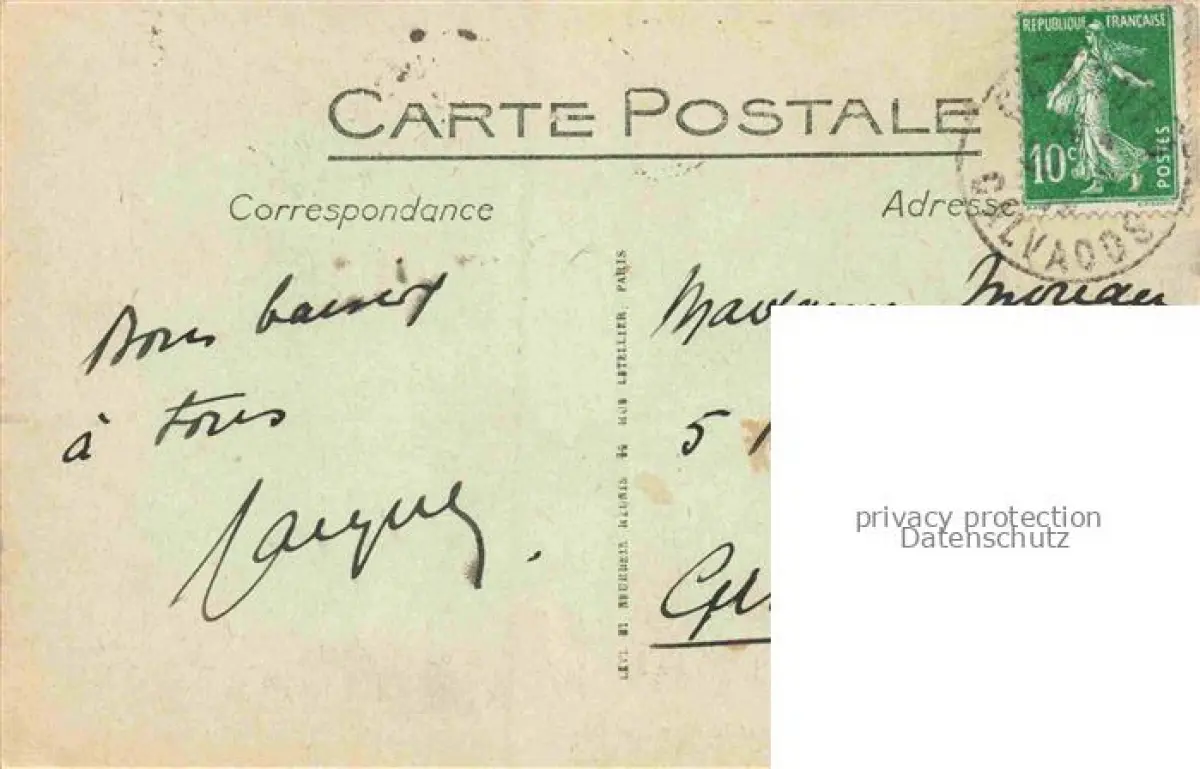 REPUBLIQUE FRANÇAISE
10c POSTES
CARTE POSTALE
CALVADOS
Correspondance
Adresse
Bons baisers
à tous
Jacques.
Madame
5
LÉVY ET NEURDEIN RÉUNIS 44 RUE LETELLIER, PARIS
privacy protection
Datenschutz